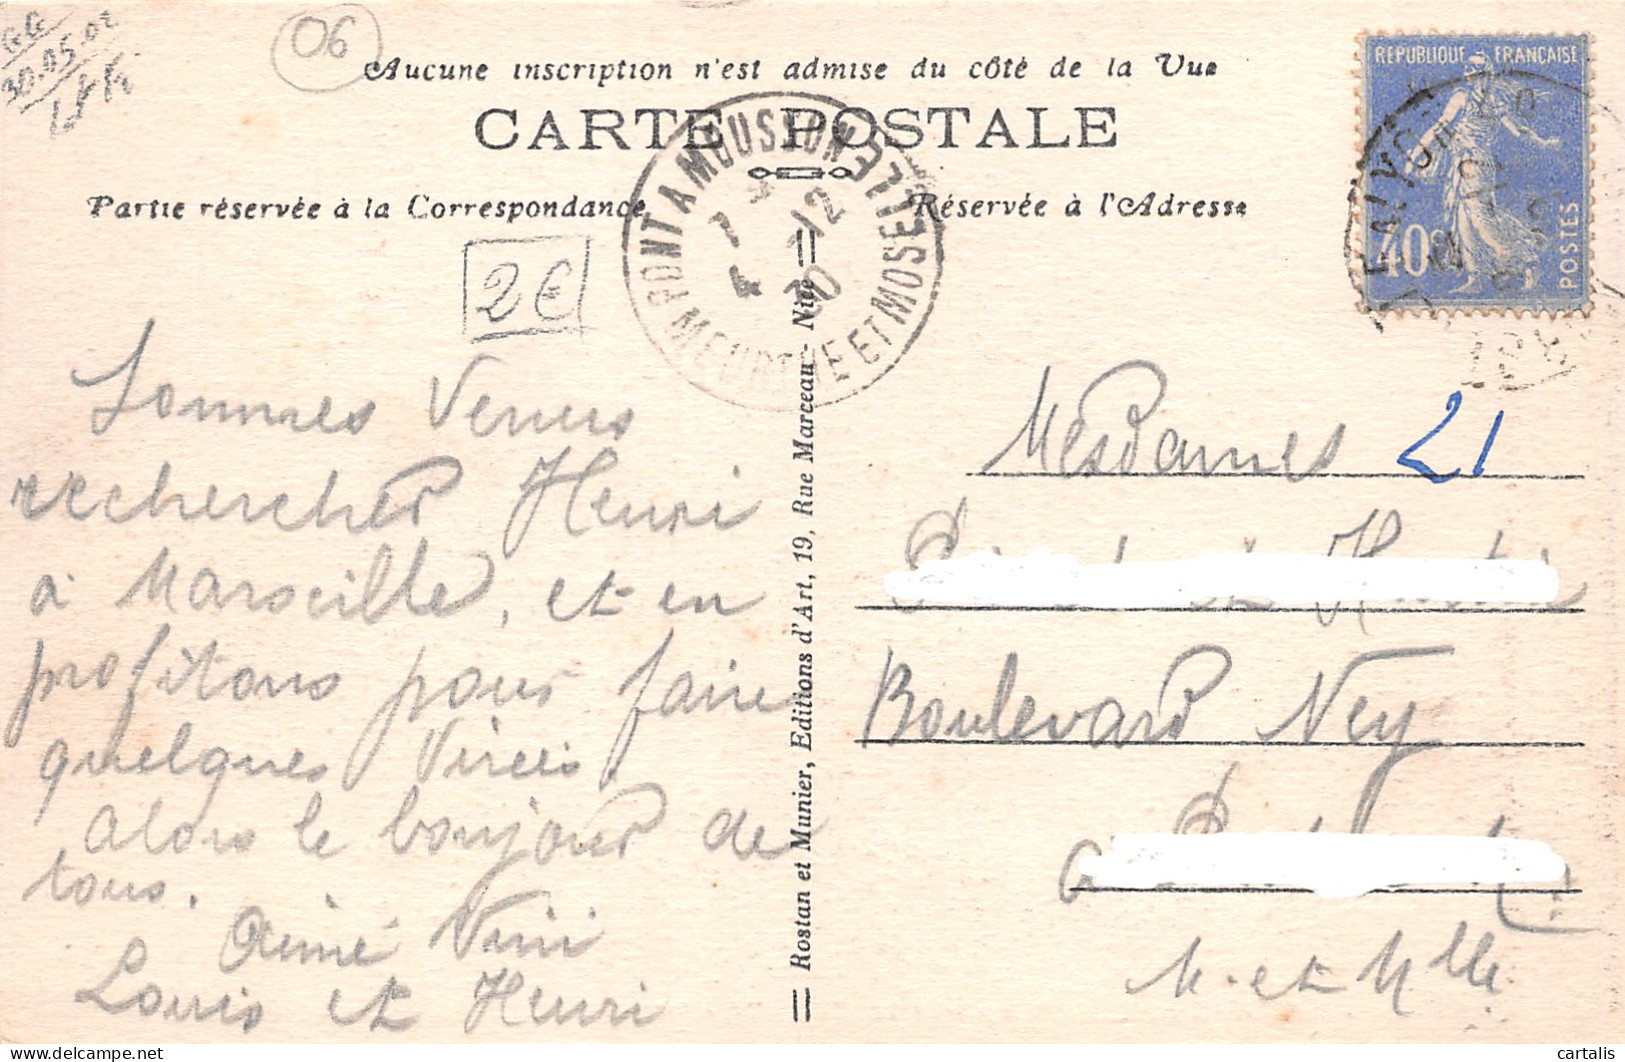 GG
30.05.02
06
Aucune inscription n'est admise du côté de la Vue
CARTE POSTALE
Partie réservée à la Correspondance
Réservée à l'Adresse
REPUBLIQUE FRANÇAISE
40c
POSTES
PONT A MOUSSON
MEURTHE ET MOSELLE
7
4 -12
30
2€
Sommes venus
rechercher Henri
à Marseille, et en
profitons pour faire
quelques virées.
Alors le bonjour de
tous.
Aimé Vini
Louis et Henri
Rostan et Munier, Editions d'Art, 19, Rue Marceau - Nice
MesDames 21
Boulevard Ney
à
M-et-Mlle
cartalis